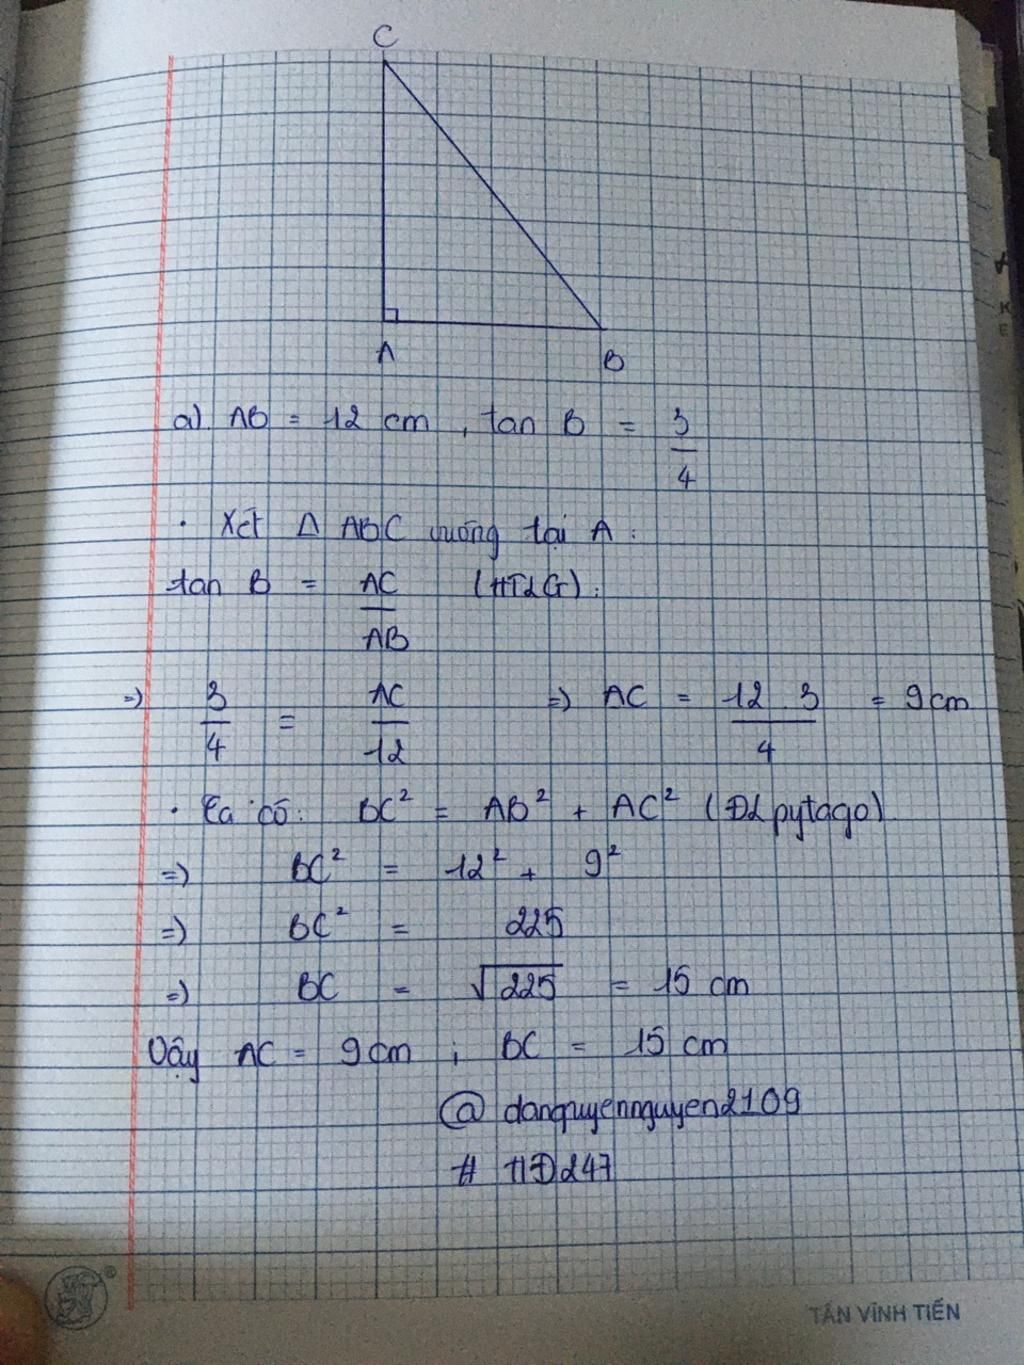 C
A B
a) AB = 12 cm , tan B = 3/4
. Xét Δ ABC vuông tại A :
tan B = AC/AB (HTLG) :
=) 3/4 = AC/12 =) AC = 12 . 3/4 = 9 cm
. Ta có : BC² = AB² + AC² (ĐL pytago)
=) BC² = 12² + 9²
=) BC² = 225
=) BC = √225 = 15 cm
Vậy AC = 9 cm ; BC = 15 cm
@ danquyennguyen2109
# HĐ247
®
TÂN VĨNH TIẾN